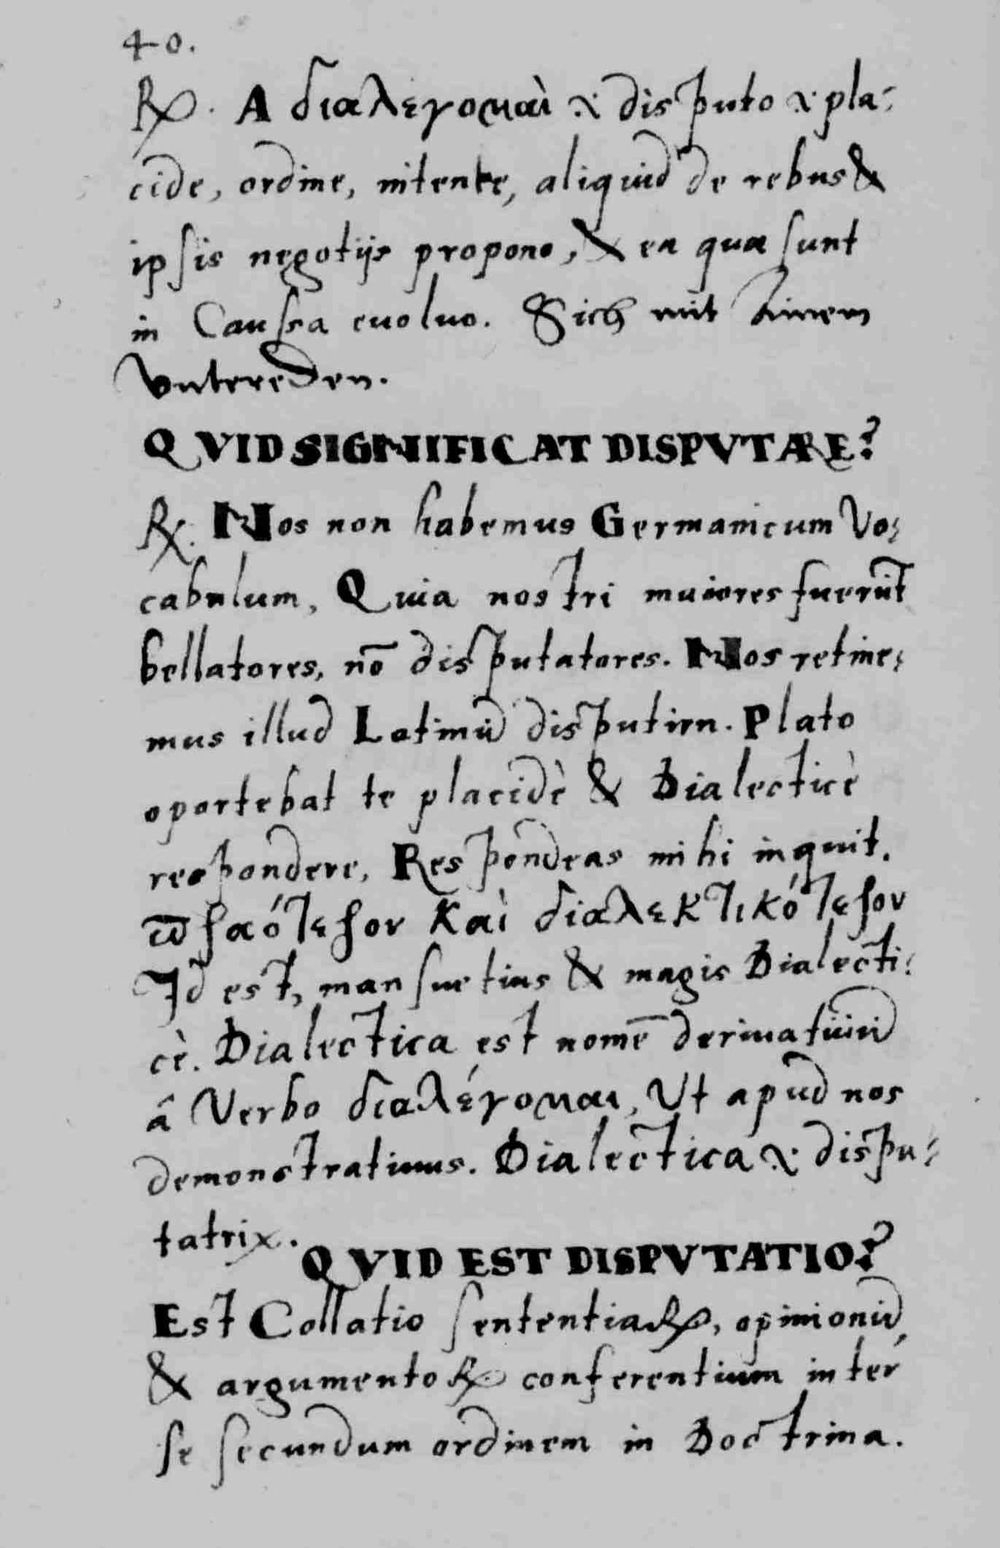 40.
℞. A διαλεγομαὶ .i. disputo .i. pla:
cide, ordine, nitente, aliquid de rebus &
ipsis negotijs propono, & ea quæ sunt
in Caussa euoluo. Sich mit Einem
vntereden.
QVID SIGNIFICAT DISPVTARE?
℞. Nos non habemus Germanicum Vo:
cabulum, Quia nostri maiores fuerūt
bellatores, nō disputatores. Nos retine:
mus illud Latinū disputirn. Plato
oportebat te placidè & Dialecticè
respondere, Respondeas mihi inquit.
πραότερον Καὶ διαλεκτικότερον
Id est, mansuetius & magis Dialecti:
cè. Dialectica est nomē deriuatiuū
â Verbo διαλέγομαι, Vt apud nos
demonstratiuus. Dialectica .i. dispu:
tatrix.
QVID EST DISPVTATIO?
Est Collatio sententiaꝝ, opinionū,
& argumentoꝝ conferentium inter
se secundum ordinem in Doctrina.